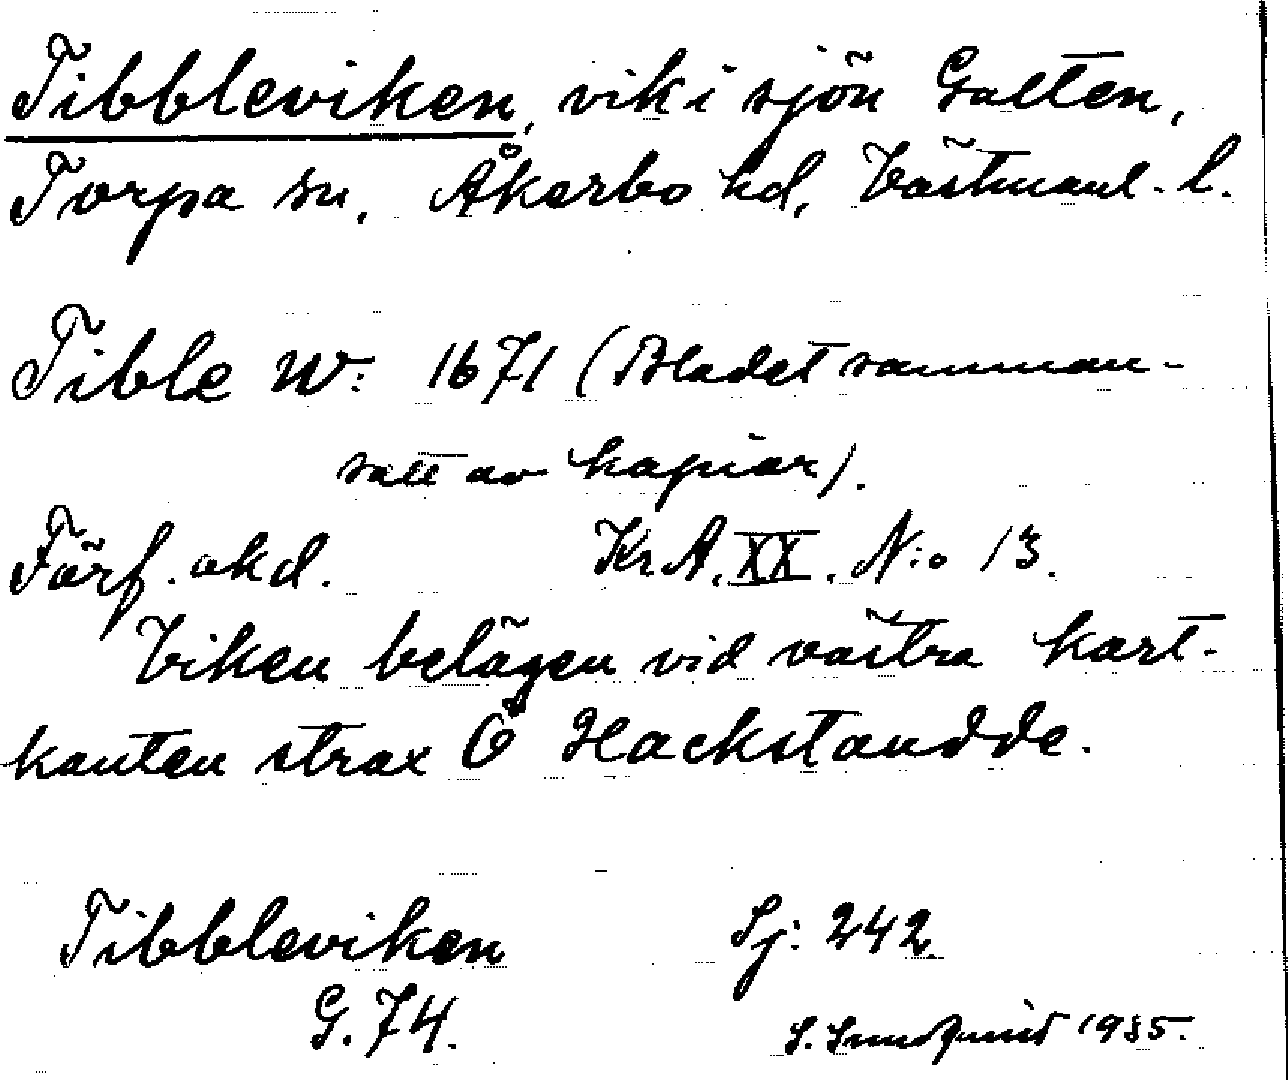 Tibbleviken, vik i sjön Galten,
Torpa sn, Åkerbo hd, Västmanl. l.
Tible W: 1671 (Bladet samman-
satt av kopior).
Förf. okd. Kr. A. XX. N:o 13.
Viken belägen vid västra kart-
kanten strax Ö Hackstandde.
Tibbleviken Sj: 242.
G. 74.
S. 1935.